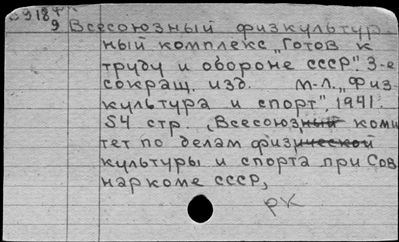 9 Всесоюзный физкультур
ный комплекс „Готов к
труду и обороне СССР". 3-е
сокращ. изд. М-Л. „Физ-
культура и спорт", 1941.
54 стр. (Всесоюзный коми
тет по делам физической
культуры и спорта при Сов
наркоме СССР,
РК